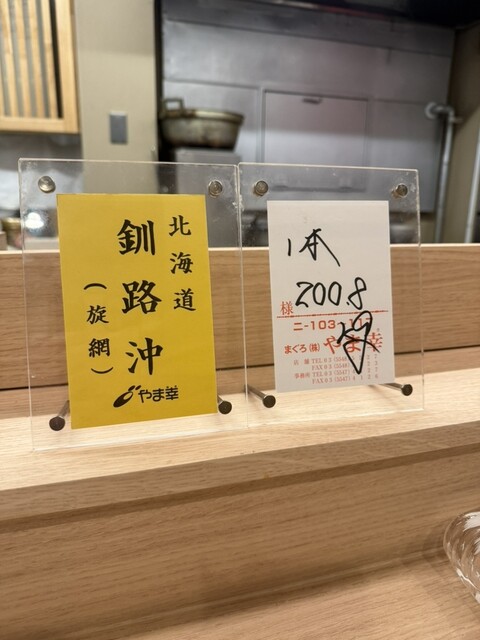 北海道
釧路沖
(旋網)
やま幸
1本
200.8
様
ニ-103
まぐろ(株)やま幸